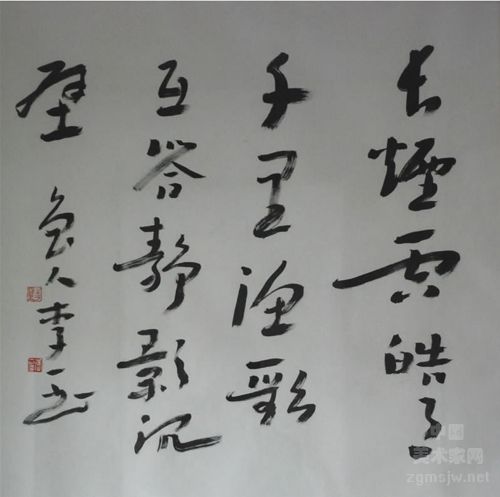 长煙一空皓月
千里渔歌
互答静影沉
璧
鲁人李
中国
美术家网
zgmsjw.net